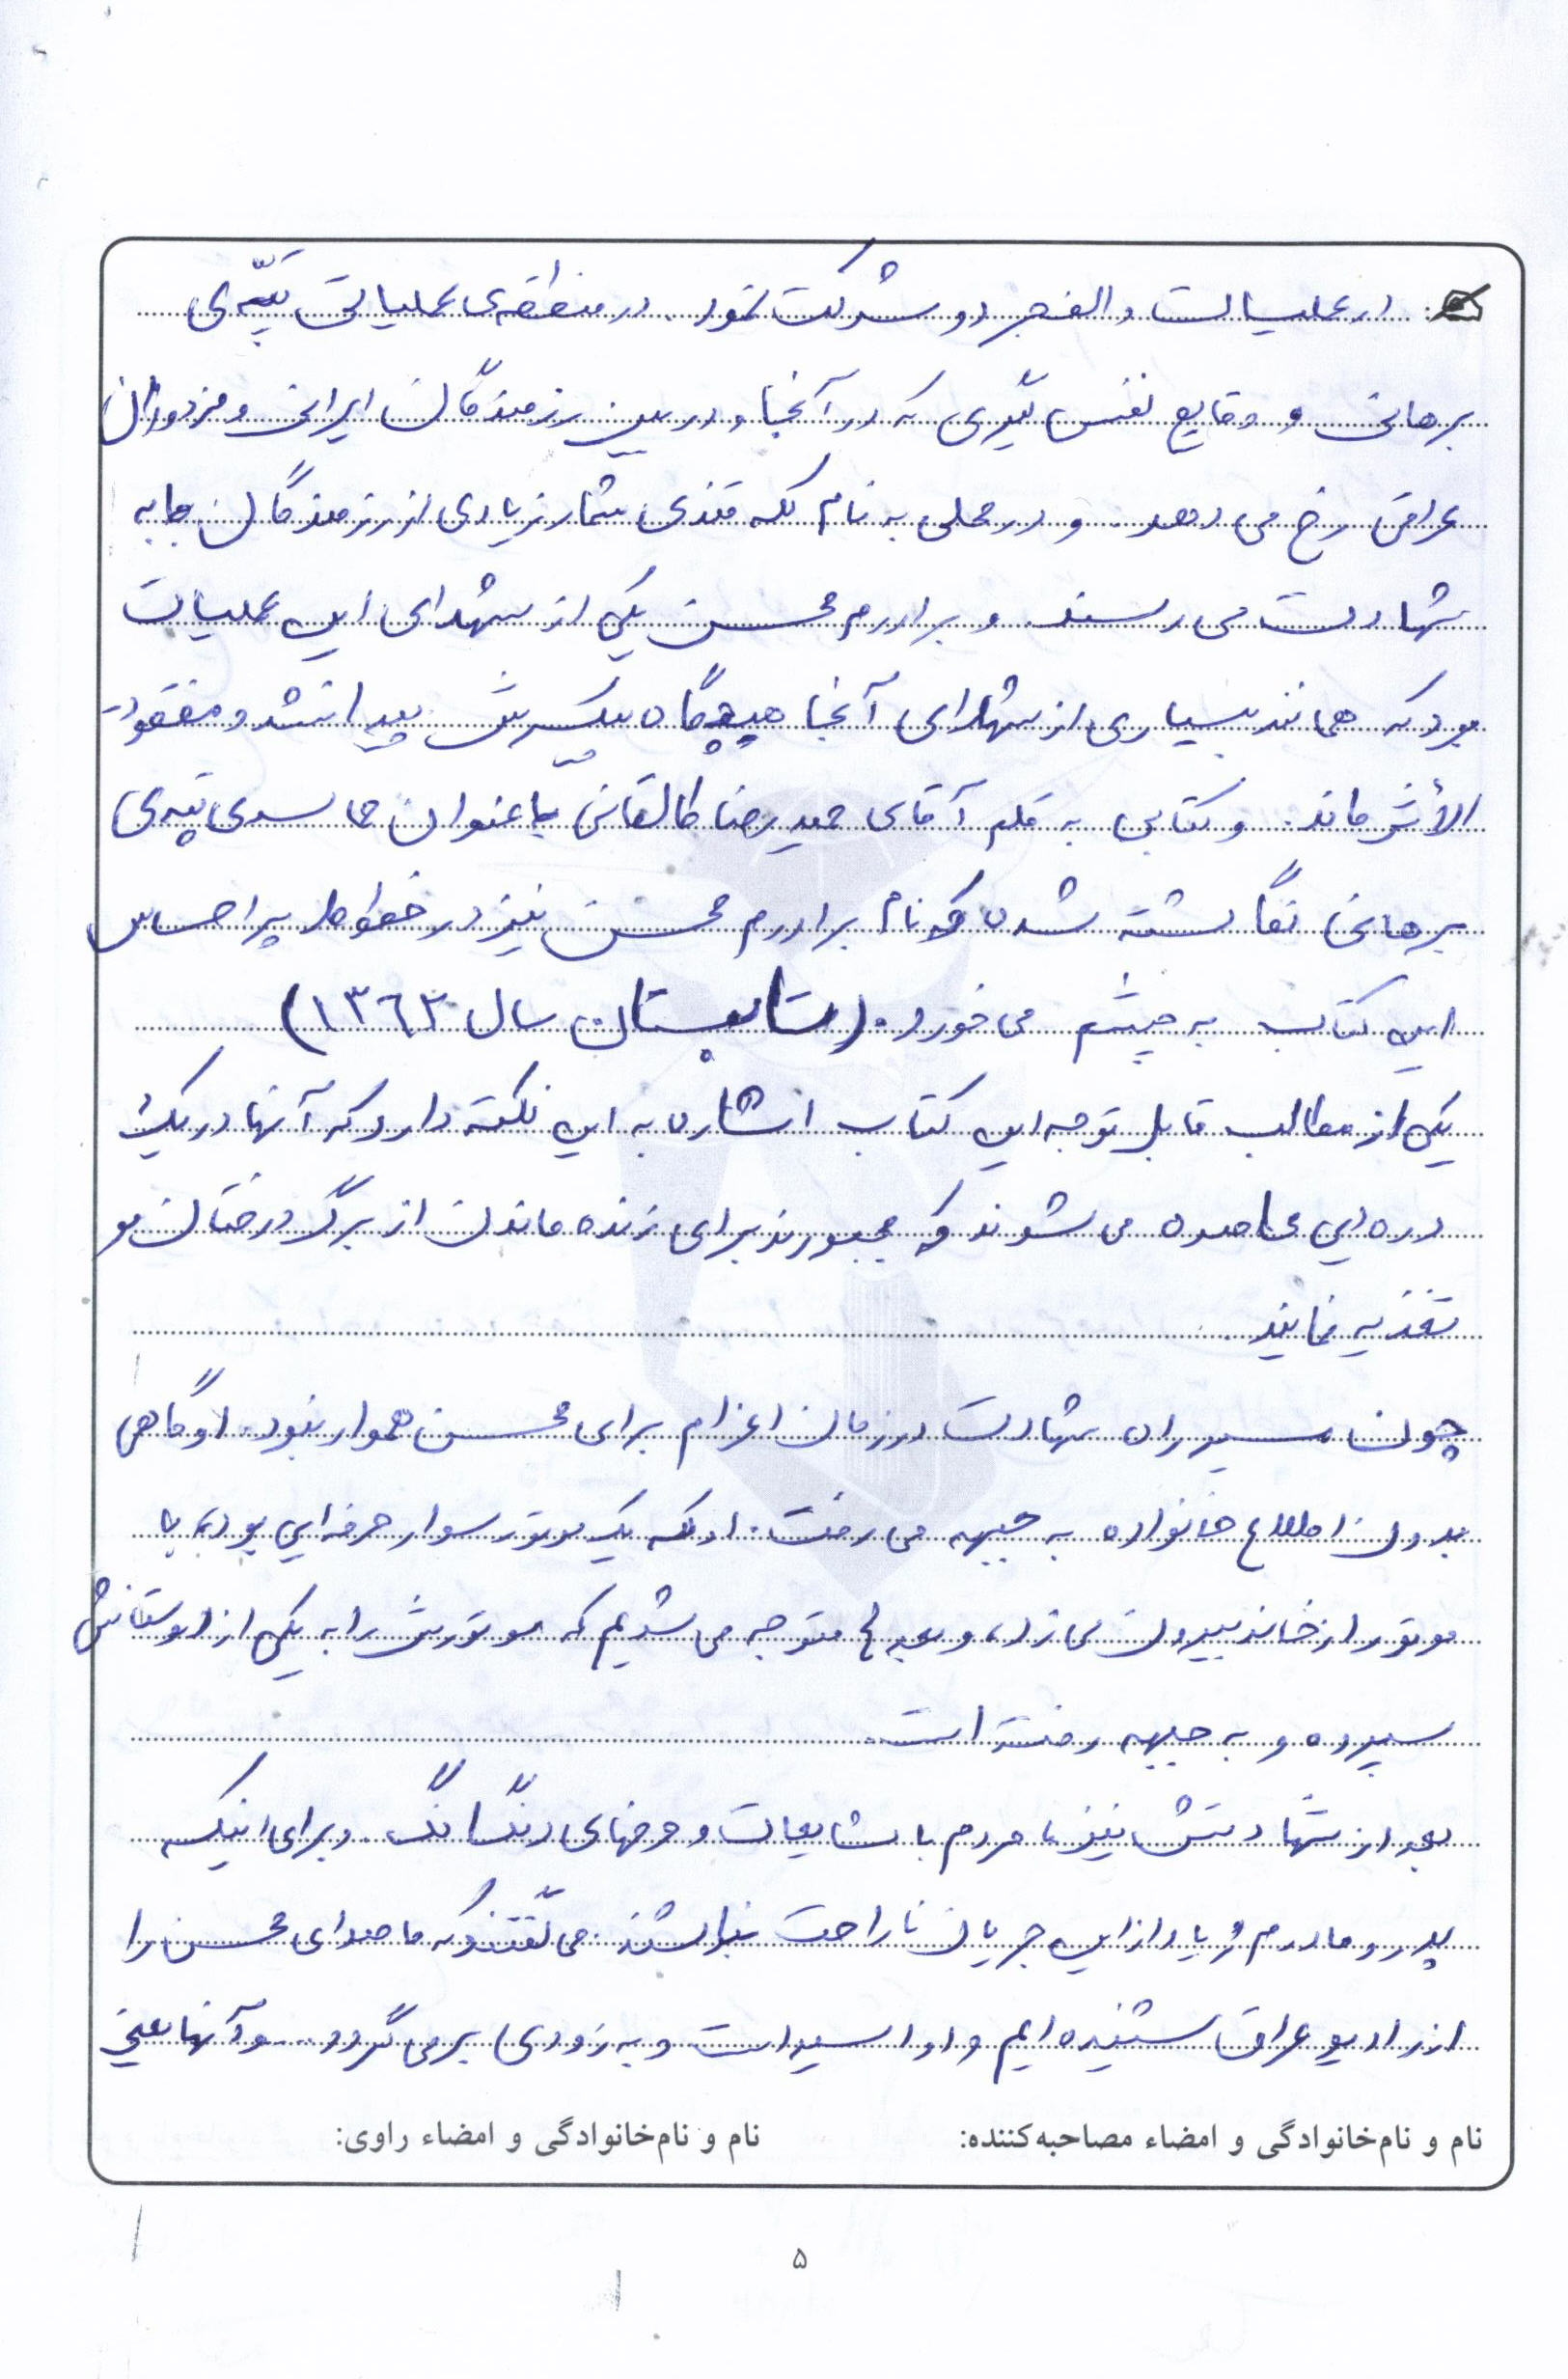 در عملیات والفجر دو شرکت نمود. در منطقه‌ی عملیاتی تپّه‌ی
برهانی و وقایع نفس گیری که در آنجا و در بین رزمندگان ایرانی و مزدوران
عراقی رخ می دهد. و در محلی به نام کله قندی شمار زیادی از رزمندگان ما به
شهادت می رسند و برادرم محسن یکی از شهدای این عملیات
بود که همانند بسیاری از شهدای آنجا هیچگاه پیکرش پیدا نشد و مفقود
الأثر ماند. و کتابی به قلم آقای حمیدرضا طالقانی با عنوان حماسه‌ی تپه‌ی
برهانی نگاشته شده که نام برادرم محسن نیز در خطوط پر احساس
این کتاب به چشم می خورد. (تابستان سال ۱۳۶۲)
یکی از مطالب قابل توجه این کتاب اشاره به این نکته دارد که آنها در یک
دره ایی محاصره می شوند که مجبورند برای زنده ماندن از برگ درختان مو
تغذیه نمایند.
چون مسیر راه شهادت در زمان اعزام برای محسن هموار نبود. او گاهی
بدون اطلاع خانواده به جبهه می رفت. او که یک موتور سوار حرفه ایی بود، با
موتور از خانه بیرون می زد، و بعدها متوجه می شدیم که موتورش را به یکی از دوستانش
سپرده و به جبهه رفته است.
بعد از شهادتش نیز، مردم با شایعات و حرفهای رنگارنگ و برای اینکه
پدر و مادرم زیاد از این جریان ناراحت نباشند. می گفتند که ما صدای محسن را
از رادیو عراق شنیده ایم و او اسیر است و به زودی برمی گردد. و آنها یعنی
نام و نام‌خانوادگی و امضاء مصاحبه‌کننده: نام و نام‌خانوادگی و امضاء راوی:
۵